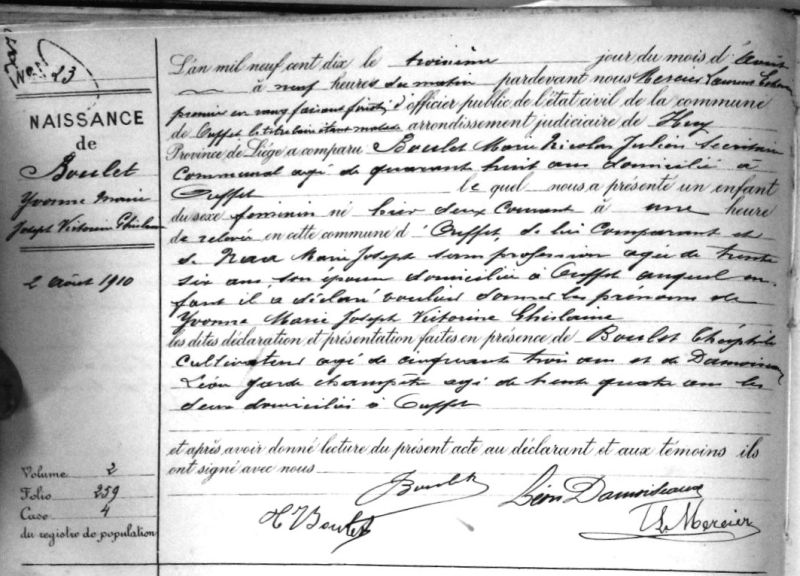 No 23
NAISSANCE
de
Boulet
Yvonne Marie
Joseph Victorine Ghislaine
2 Août 1910
Volume 2
Folio 259
Case 4
du registre de population
L'an mil neuf cent dix le troisième jour du mois d'Août
à neuf heures du matin pardevant nous Mercier Laurent
premier en rang faisant fonct. d'officier public de l'état civil de la commune
de Ouffet le titulaire étant malade arrondissement judiciaire de Huy
Province de Liége a comparu Boulet Marie Nicolas Julien Secrétaire
Communal agé de quarante huit ans domicilié à
Ouffet le quel nous a présenté un enfant
du sexe féminin né hier deux courant à une heure
de relevée en cette commune d'Ouffet, de lui Comparant et
de Marie Joseph sans profession agée de trente
six ans, son épouse domiciliée à Ouffet auquel en-
fant il a déclaré vouloir donner les prénoms de
Yvonne Marie Joseph Victorine Ghislaine
les dites déclaration et présentation faites en présence de Boulet Théophile
cultivateur agé de cinquante trois ans et de Damoiseau
Léon garde champêtre agé de trente quatre ans les
deux domiciliés à Ouffet
et après, avoir donné lecture du présent acte au déclarant et aux témoins ils
ont signé avec nous
Boulet
Léon Damoiseaux
Boulet
L. Mercier